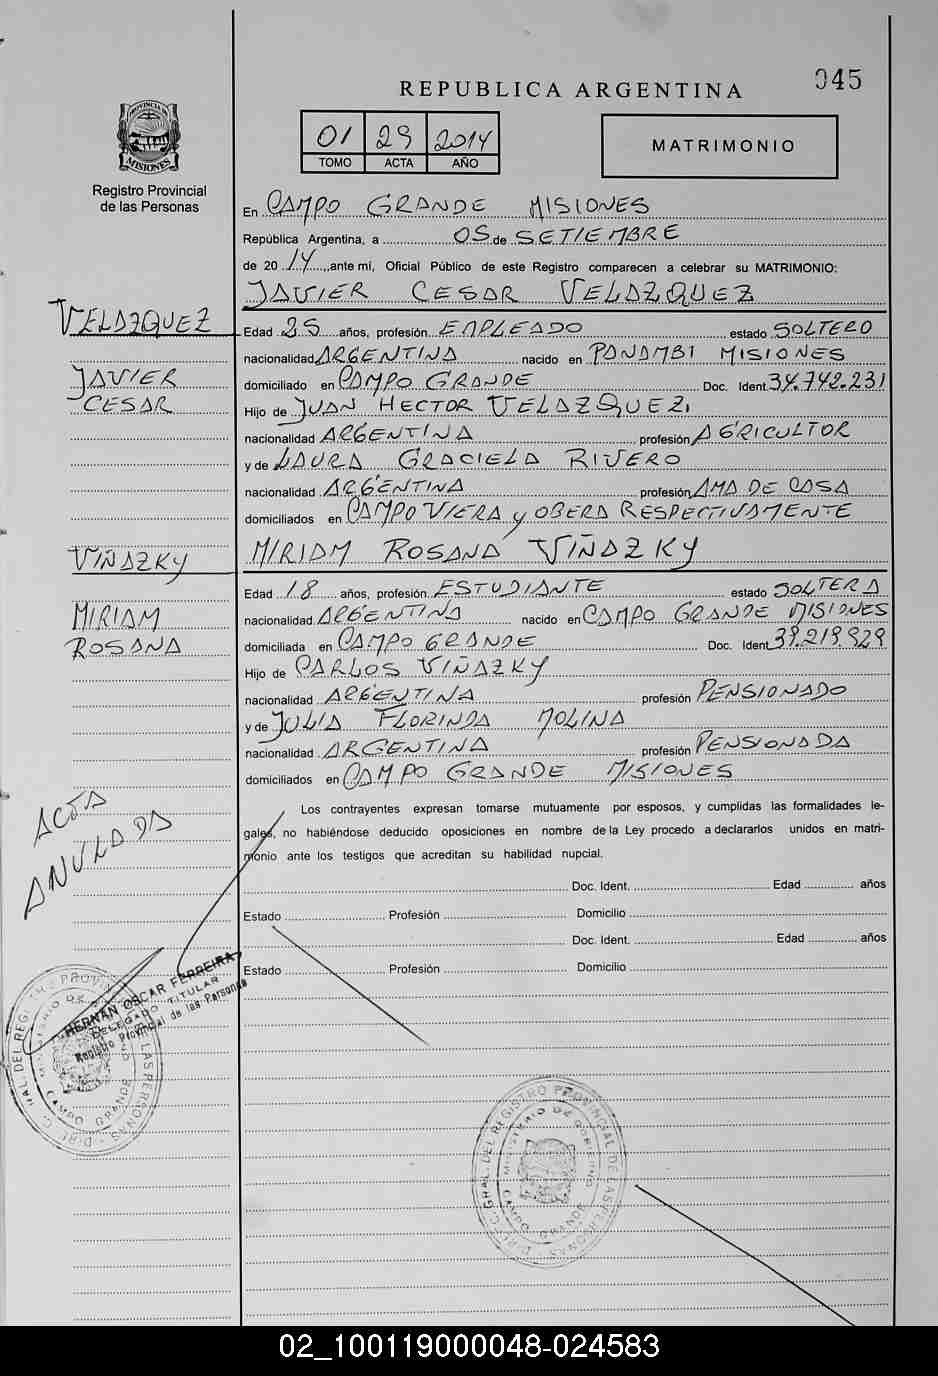 045
REPUBLICA ARGENTINA
PROVINCIA DE
MISIONES
Registro Provincial
de las Personas
01 29 2014
TOMO ACTA AÑO
MATRIMONIO
En CAMPO GRANDE MISIONES
República Argentina, a 05 de SETIEMBRE
de 2014, ante mí, Oficial Público de este Registro comparecen a celebrar su MATRIMONIO:
JAVIER CESAR VELAZQUEZ
VELAZQUEZ
JAVIER
CESAR
Edad 25 años, profesión EMPLEADO estado SOLTERO
nacionalidad ARGENTINA nacido en PANAMBI MISIONES
domiciliado en CAMPO GRANDE Doc. Ident. 34.742.231
Hijo de JUAN HECTOR VELAZQUEZ
nacionalidad ARGENTINA profesión AGRICULTOR
y de LAURA GRACIELA RIVERO
nacionalidad ARGENTINA profesión AMA DE CASA
domiciliados en CAMPO VIERA y OBERA RESPECTIVAMENTE
MIRIAM ROSANA VIÑAZKY
VIÑAZKY
MIRIAM
ROSANA
Edad 18 años, profesión ESTUDIANTE estado SOLTERA
nacionalidad ARGENTINA nacido en CAMPO GRANDE MISIONES
domiciliada en CAMPO GRANDE Doc. Ident. 39.219.929
Hijo de CARLOS VIÑAZKY
nacionalidad ARGENTINA profesión PENSIONADO
y de JULIA FLORINDA MOLINA
nacionalidad ARGENTINA profesión PENSIONADA
domiciliados en CAMPO GRANDE MISIONES
ACTA
ANULADA
Los contrayentes expresan tomarse mutuamente por esposos, y cumplidas las formalidades le-
gales, no habiéndose deducido oposiciones en nombre de la Ley procedo a declararlos unidos en matri-
monio ante los testigos que acreditan su habilidad nupcial.
Doc. Ident. Edad años
Estado Profesión Domicilio
Doc. Ident. Edad años
Estado Profesión Domicilio
HERNAN OSCAR FERREIRA
DELEGADO TITULAR
Registro Provincial de las Personas
DIREC. GRAL. DEL REGISTRO PROVINCIAL DE LAS PERSONAS
MINISTERIO DE GOBIERNO
CAMPO GRANDE
02_100119000048-024583